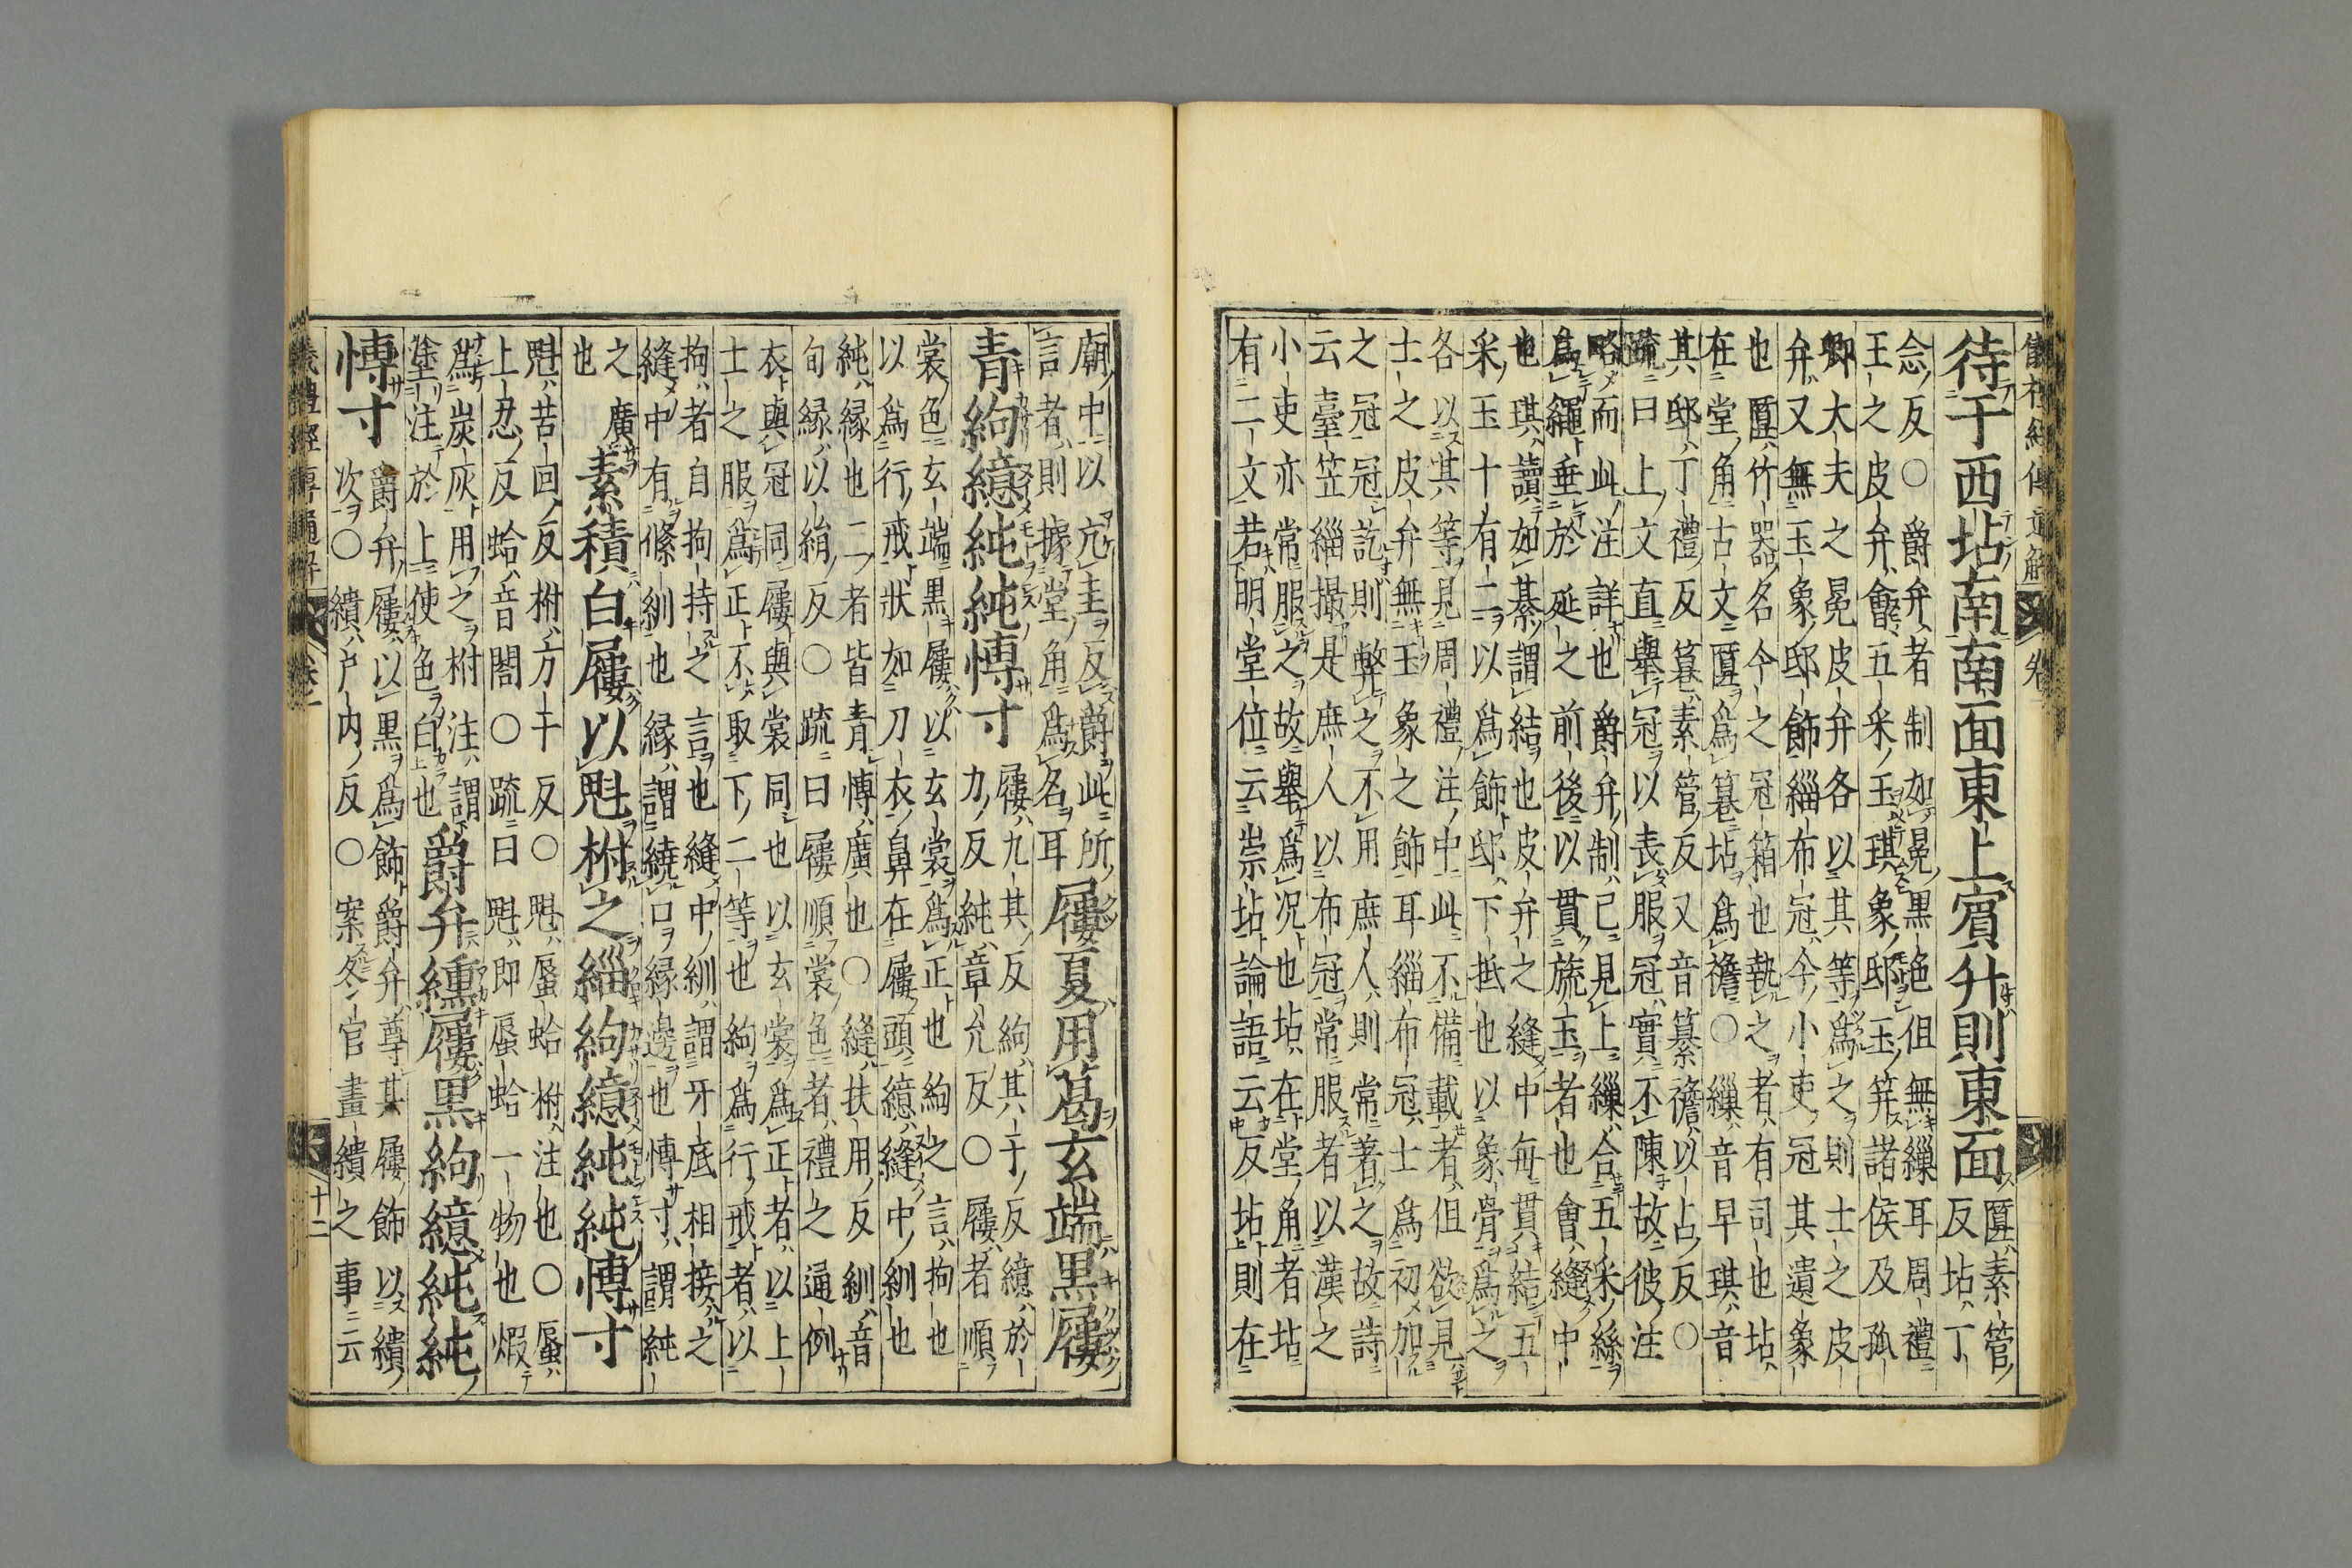 儀禮經傳通解 卷一
待于西坫南南面東上賓升則東面 匴素管
反坫丁
念反○爵弁者制如冕黑色但無繅耳周禮
王之皮弁會五采玉琪象邸玉笄諸侯及孤
卿大夫之冕皮弁各以其等爲之則士之皮
弁又無玉象邸飾緇布冠今小吏冠其遺象
也匴竹器名今之冠箱也執之者有司也坫
在堂角古文匴爲篹坫爲襜○繅音早琪音
其邸丁禮反篹素管反又音纂襜以占反○
疏曰上文直舉冠以表服冠實不陳故彼注
略而此注詳也爵弁制已見上繅合五采絲
爲繩垂於延之前後以貫旒玉者也會縫中
也琪讀如綦謂結也皮弁之縫中每貫結五
采玉十有二以爲飾邸下抵也以象骨爲之
各以其等見周禮注中此不備載者但欲見
士之皮弁無玉象之飾耳緇布冠士爲初加
之冠冠訖則弊之不用庶人則常著之故詩
云臺笠緇撮是庶人以布冠常服者以漢之
小吏亦常服之故舉爲況也坫在堂角者坫
有二文若明堂位云崇坫論語云反坫則在
廟中以亢圭反爵此所
言者則據堂角爲名耳 屨夏用葛玄端黑屨
青絇繶純純博寸 屨九其反絇其于反繶於
力反純章允反○屨者順
裳色玄端黑屨以玄裳爲正也絇之言拘也
以爲行戒狀如刀衣鼻在屨頭繶縫中紃也
純緣也二者皆青博廣也○縫扶用反紃音
旬緣以絹反○疏曰屨順裳色者禮之通例
衣與冠同屨與裳同也以玄裳爲正者以上
士之服爲正不取下二等也絇爲行戒者以
拘者自拘持之言也縫中紃謂牙底相接之
縫中有絛紃也緣謂繞口緣邊也博寸謂純
之廣
也 素積白屨以魁柎之緇絇繶純純博寸
魁苦回反柎方干反○魁蜃蛤柎注也○蜃
上忍反蛤音閤○疏曰魁即蜃蛤一物也煆
爲炭灰用之柎注謂
塗注於上使色白也 爵弁纁屨黑絇繶純純
博寸 爵弁屨以黑爲飾爵弁尊其屨飾以繢
次○繢户内反○案冬官畫繢之事云
儀禮經傳通解 卷一 十二